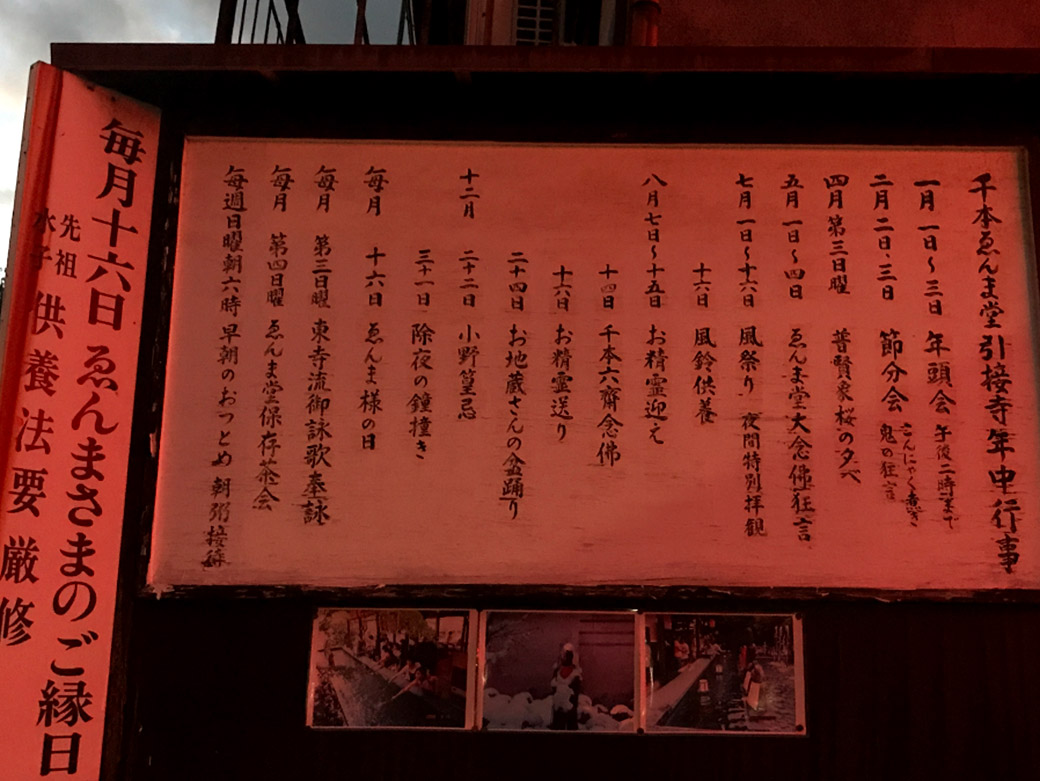 千本ゑんま堂引接寺年中行事
一月 一日~三日 年頭会 午後二時まで
二月 二日、三日 節分会 こんにゃく煮き
鬼の狂言
四月 第三日曜 普賢象桜の夕べ
五月 一日~四日 ゑんま堂大念佛狂言
七月 一日~十六日 風祭り 夜間特別拝観
十六日 風鈴供養
八月 七日~十五日 お精霊迎え
十四日 千本六齋念佛
十六日 お精霊送り
二十四日 お地蔵さんの盆踊り
十二月 二十二日 小野篁忌
三十一日 除夜の鐘撞き
毎月 十六日 ゑんま様の日
毎月 第三日曜 東寺流御詠歌奉詠
毎月 第四日曜 ゑんま堂保存茶会
毎週日曜朝六時 早朝のおつとめ 朝粥接待
毎月十六日 ゑんまさまのご縁日
先祖
水子
供養法要厳修